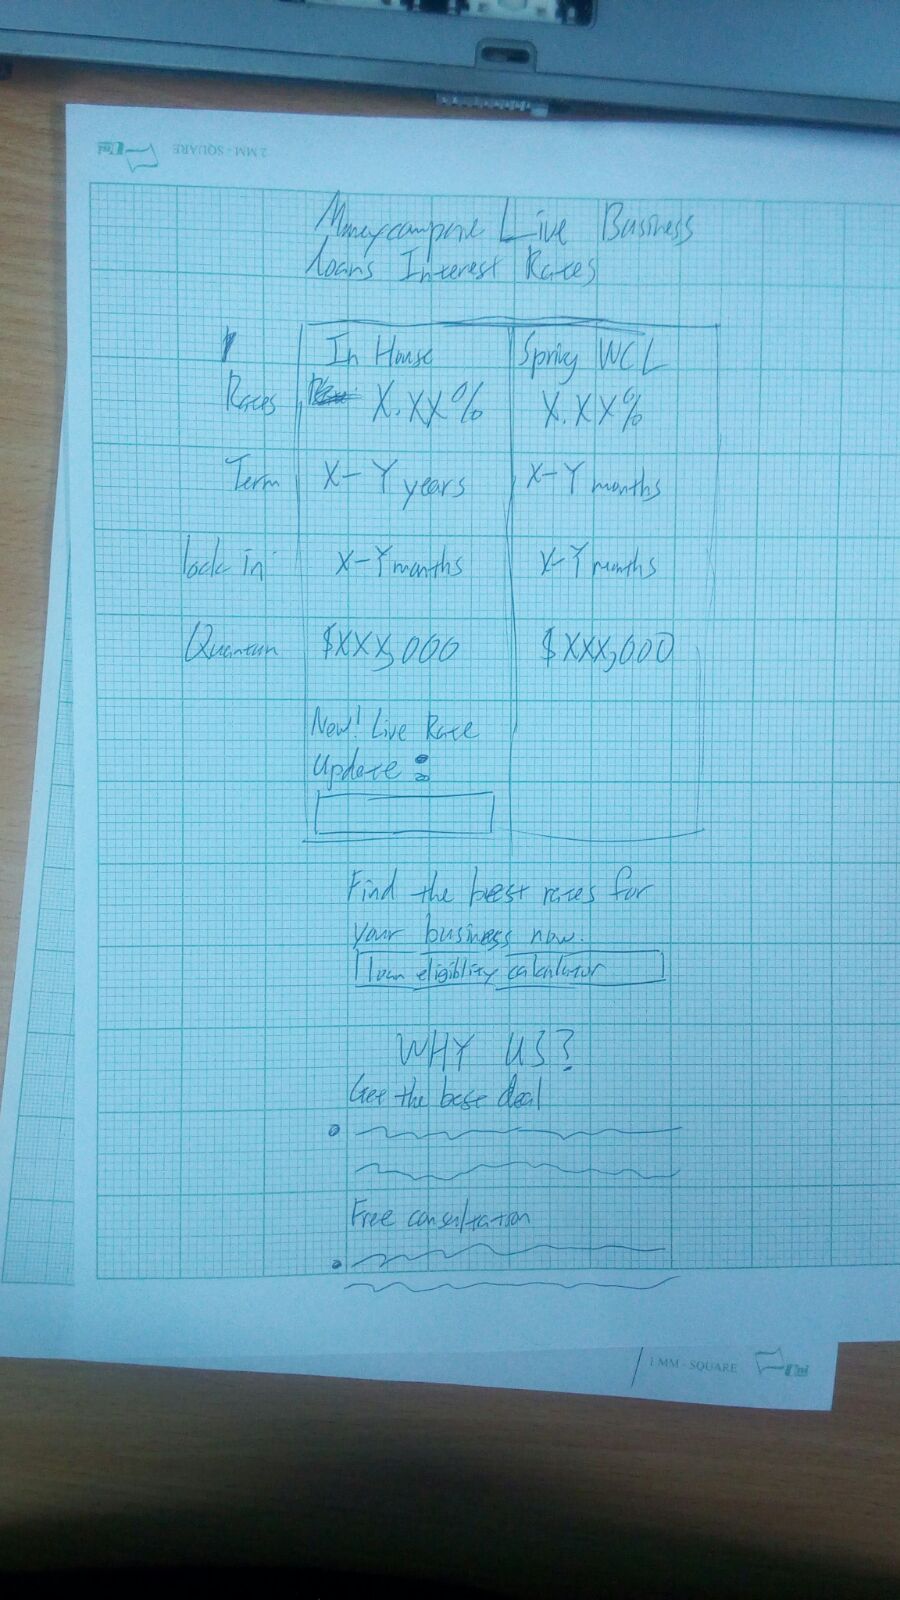 2 MM - SQUARE
Moneycompare Live Business
loans Interest Rates
In House Spring WCL
Rates X.XX% X.XX%
Term X-Y years X-Y months
lock in X-Y months X-Y months
Quantum $XXX,000 $XXX,000
New! Live Rate
Update :
Find the best rates for
your business now.
loan eligiblity calculator
WHY US?
Get the best deal
Free consultation
1 MM - SQUARE